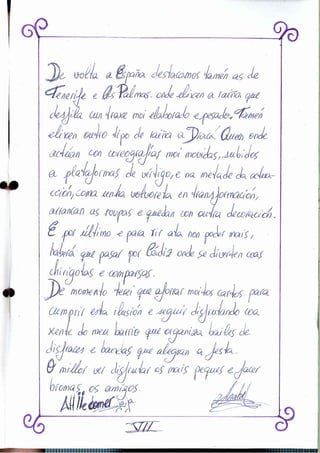 De volta a España destacamos tamén as de
Tenerife e Las Palmas. onde elixen a raíña que
desfila cun traxe moi elaborado e pesado. Tamén
elixen outro tipo de raíña a Drack Queen onde
actúan con coreografías moi movidas, subidos
a plataformas de vértigo, e na metade da actua-
ción, coma unha volvoreta en transformación,
arrancan as roupas e quedan con outra decoración.
E por último e para rir ata non poder mais,
habería que pasar por Cádiz onde se divirten coas
chirigotas e comparsas.
De momento terei que aforrar moitos cartos para
cumprir esta ilusión e seguir disfrutando coa
xente do meu barrio que organiza bailes de
disfraces e bandas que alegran a festa.
O millor ver disfrutar os mais peques e facer
bromas os amigos.
VIII